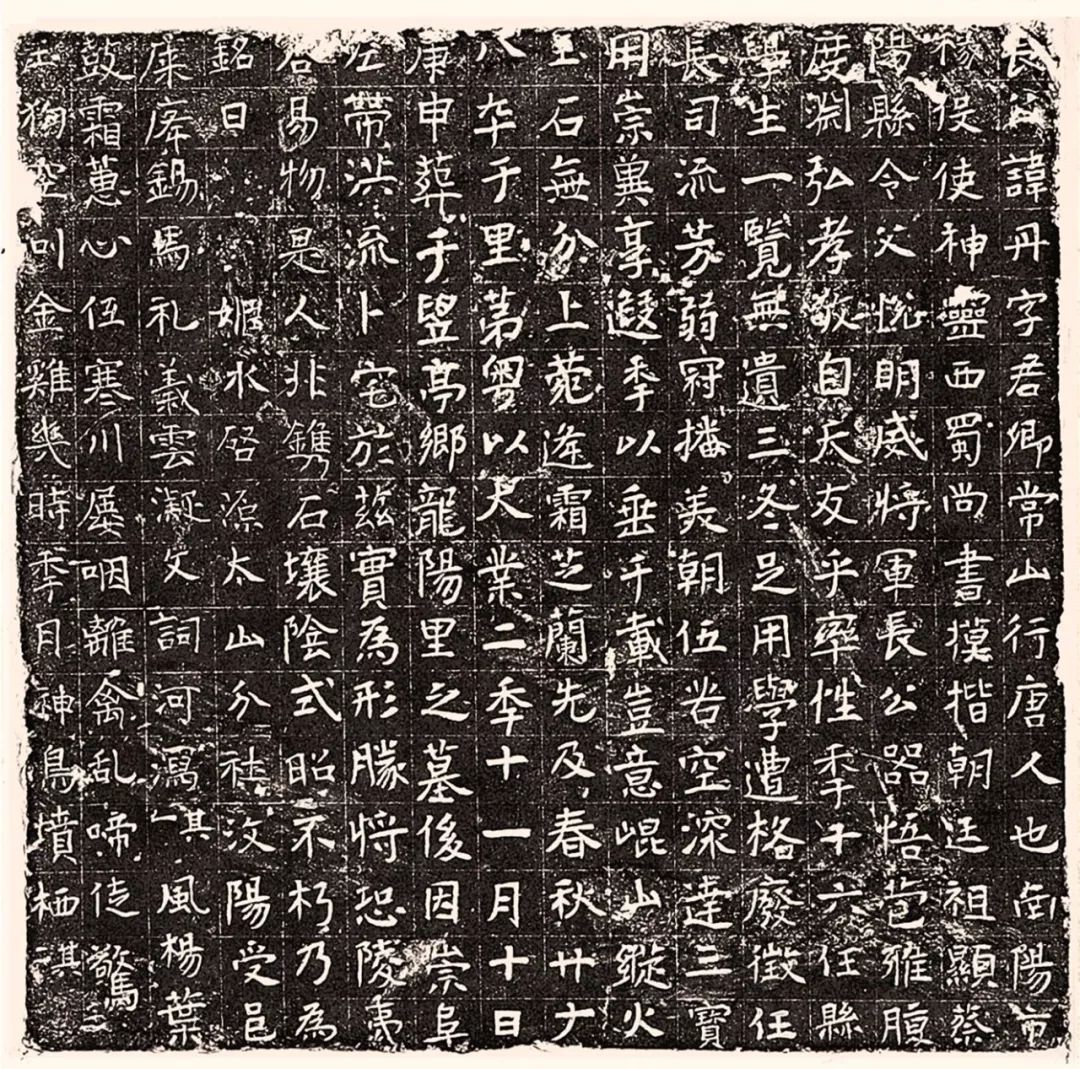 長諱丹字君卿常山行唐人也南陽市
使神靈西蜀尚書摸揩朝廷祖顯蔡
陽縣令父悅明威將軍長公器悟苞雅腹
度淵弘孝敬自天友乎率性年十六任縣
學生一覽無遺三冬足用學遭格廢徵任
長司流芳弱冠播美朝伍若空深達三寶
用崇冀享遐年以垂千載豈意崐山縱火
玉石無分上菀逄霜芝蘭先及春秋廿有
八卒于里第粵以大業二年十一月十日
庚申葬于竪亭鄉龍陽里之墓後因崇阜
左帶洪流卜宅於茲實為形勝將恐陵夷
谷易物是人非鐫石壤陰式昭不朽乃為
銘曰 媯水啓源太山分社汶陽受邑
庠錫馬礼義雲凝文詞河瀉其一風楊葉
鼓霜蕙心伍寒川屢咽離禽乱啼徒驚
玉狗空叫金雞幾時年月神鳥墳栖其三